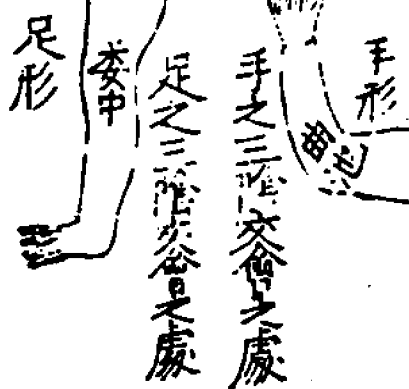 手形
曲池
手之三陰交會之處
足之三陰交會之處
委中
足形